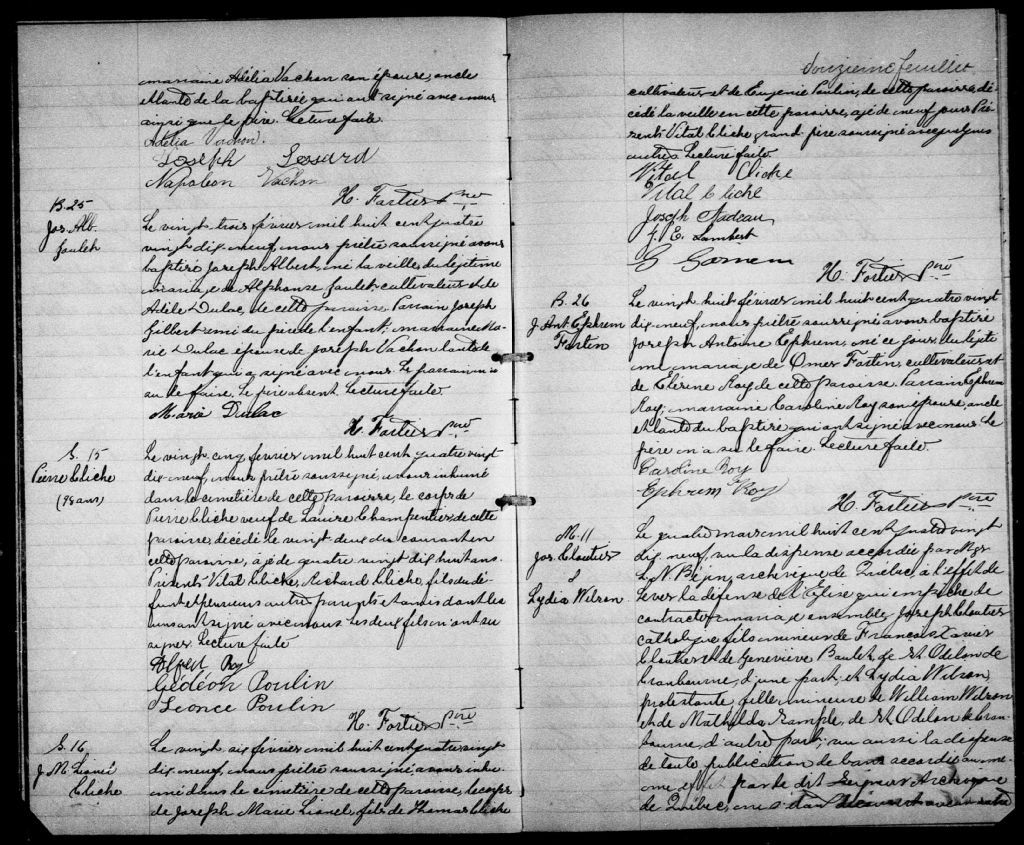 marraine Adélia Vachon son épouse, oncle
et tante de la baptisée qui ont signé avec nous
ainsi que le père. Lecture faite
Adélia Vachon.
Joseph Lessard
Napoléon Vachon
H. Fortier Ptre
B. 25
Jos. Alb.
Goulet
Le vingt trois février mil huit cent quatre
vingt dix neuf, nous prêtre soussigné avons
baptisé Joseph Albert, né la veille du légitime
mariage de Alphonse Goulet cultivateur et de
Adèle Dulac, de cette paroisse. Parrain Joseph
Gilbert ami du père de l'enfant; marraine Ma-
rie Dulac épouse de Joseph Vachon tante de
l'enfant qui a signé avec nous. Le parrain n'a
su le faire. Le père absent. Lecture faite.
Marie Dulac
H. Fortier Ptre
S. 15
Pierre Cliche
(98 ans)
Le vingt cinq février mil huit cent quatre vingt
dix neuf, nous prêtre soussigné, avons inhumé
dans le cimetière de cette paroisse, le corps de
Pierre Cliche veuf de Louise Champentier, de cette
paroisse, décédé le vingt deux du courant en
cette paroisse, agé de quatre vingt dix huit ans.
Présents Vital Cliche, Richard Cliche, fils du dé-
funt et plusieurs autres parents et amis dont les
uns ont signé avec nous. Les deux fils n'ont su
signer. Lecture faite
Alfred Roy
Gédéon Poulin
Léonce Poulin
H. Fortier Ptre
S. 16
J. M. Lionel
Cliche
Le vingt six février mil huit cent quatre vingt
dix neuf, nous prêtre soussigné, avons inhu-
mé dans le cimetière de cette paroisse, le corps
de Joseph Marie Lionel, fils de Thomas Cliche
douzième feuillet
cultivateur et de Eugénie Poulin, de cette paroisse, dé-
cédé la veille en cette paroisse, agé de neuf jours. Pré-
sents Vital Cliche grand père soussigné avec quelques
autres. Lecture faite
Vital Cliche
Vital Cliche
Joseph Nadeau
J. E. Lambert
H. Fortier Ptre
B. 26
J. Ant. Ephrem
Fortin
Le vingt huit février mil huit cent quatre vingt
dix neuf, nous prêtre soussigné avons baptisé
Joseph Antoine Ephrem, né ce jour du légiti-
me mariage de Omer Fortin, cultivateur et
de Elésine Roy de cette paroisse. Parrain Ephrem
Roy; marraine Caroline Roy son épouse, oncle
et tante du baptisé qui ont signé avec nous. Le
père n'a su le faire. Lecture faite.
Caroline Roy
Ephrem Roy
H. Fortier Ptre
M. 11
Jos. Cloutier
&
Lydia Wilson
Le quatre mars mil huit cent quatre vingt
dix neuf, vu la dispense accordée par Mgr
L. N. Bégin, archevêque de Québec, à l'effet de
lever la défense de l'Église qui empêche de
contracter mariage ensemble Joseph Cloutier
catholique, fils mineur de François Xavier
Cloutier et de Geneviève Boulet, de St Odilon de
Cranbourne, d'une part, et Lydia Wilson,
protestante, fille mineure de William Wilson
et de Mathilda Sample, de St Odilon de Cran-
bourne, d'autre part; vu aussi la dispense
de toute publication de bans accordée au mê-
me effet par le dit Seigneur Archevêque
de Québec,